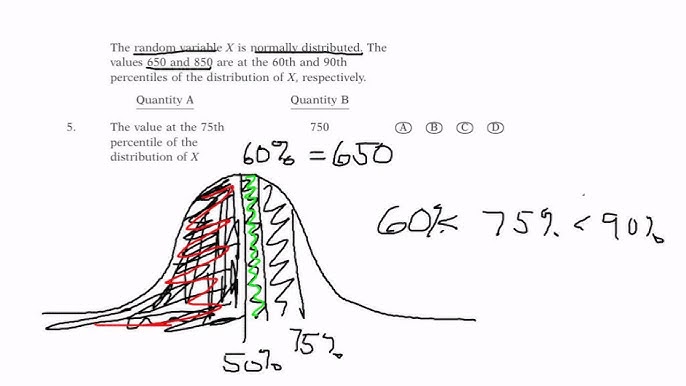 The random variable X is normally distributed. The
values 650 and 850 are at the 60th and 90th
percentiles of the distribution of X, respectively.
Quantity A Quantity B
5. The value at the 75th 750 A B C D
percentile of the
distribution of X
60% = 650
60% < 75% < 90%
50% 75%